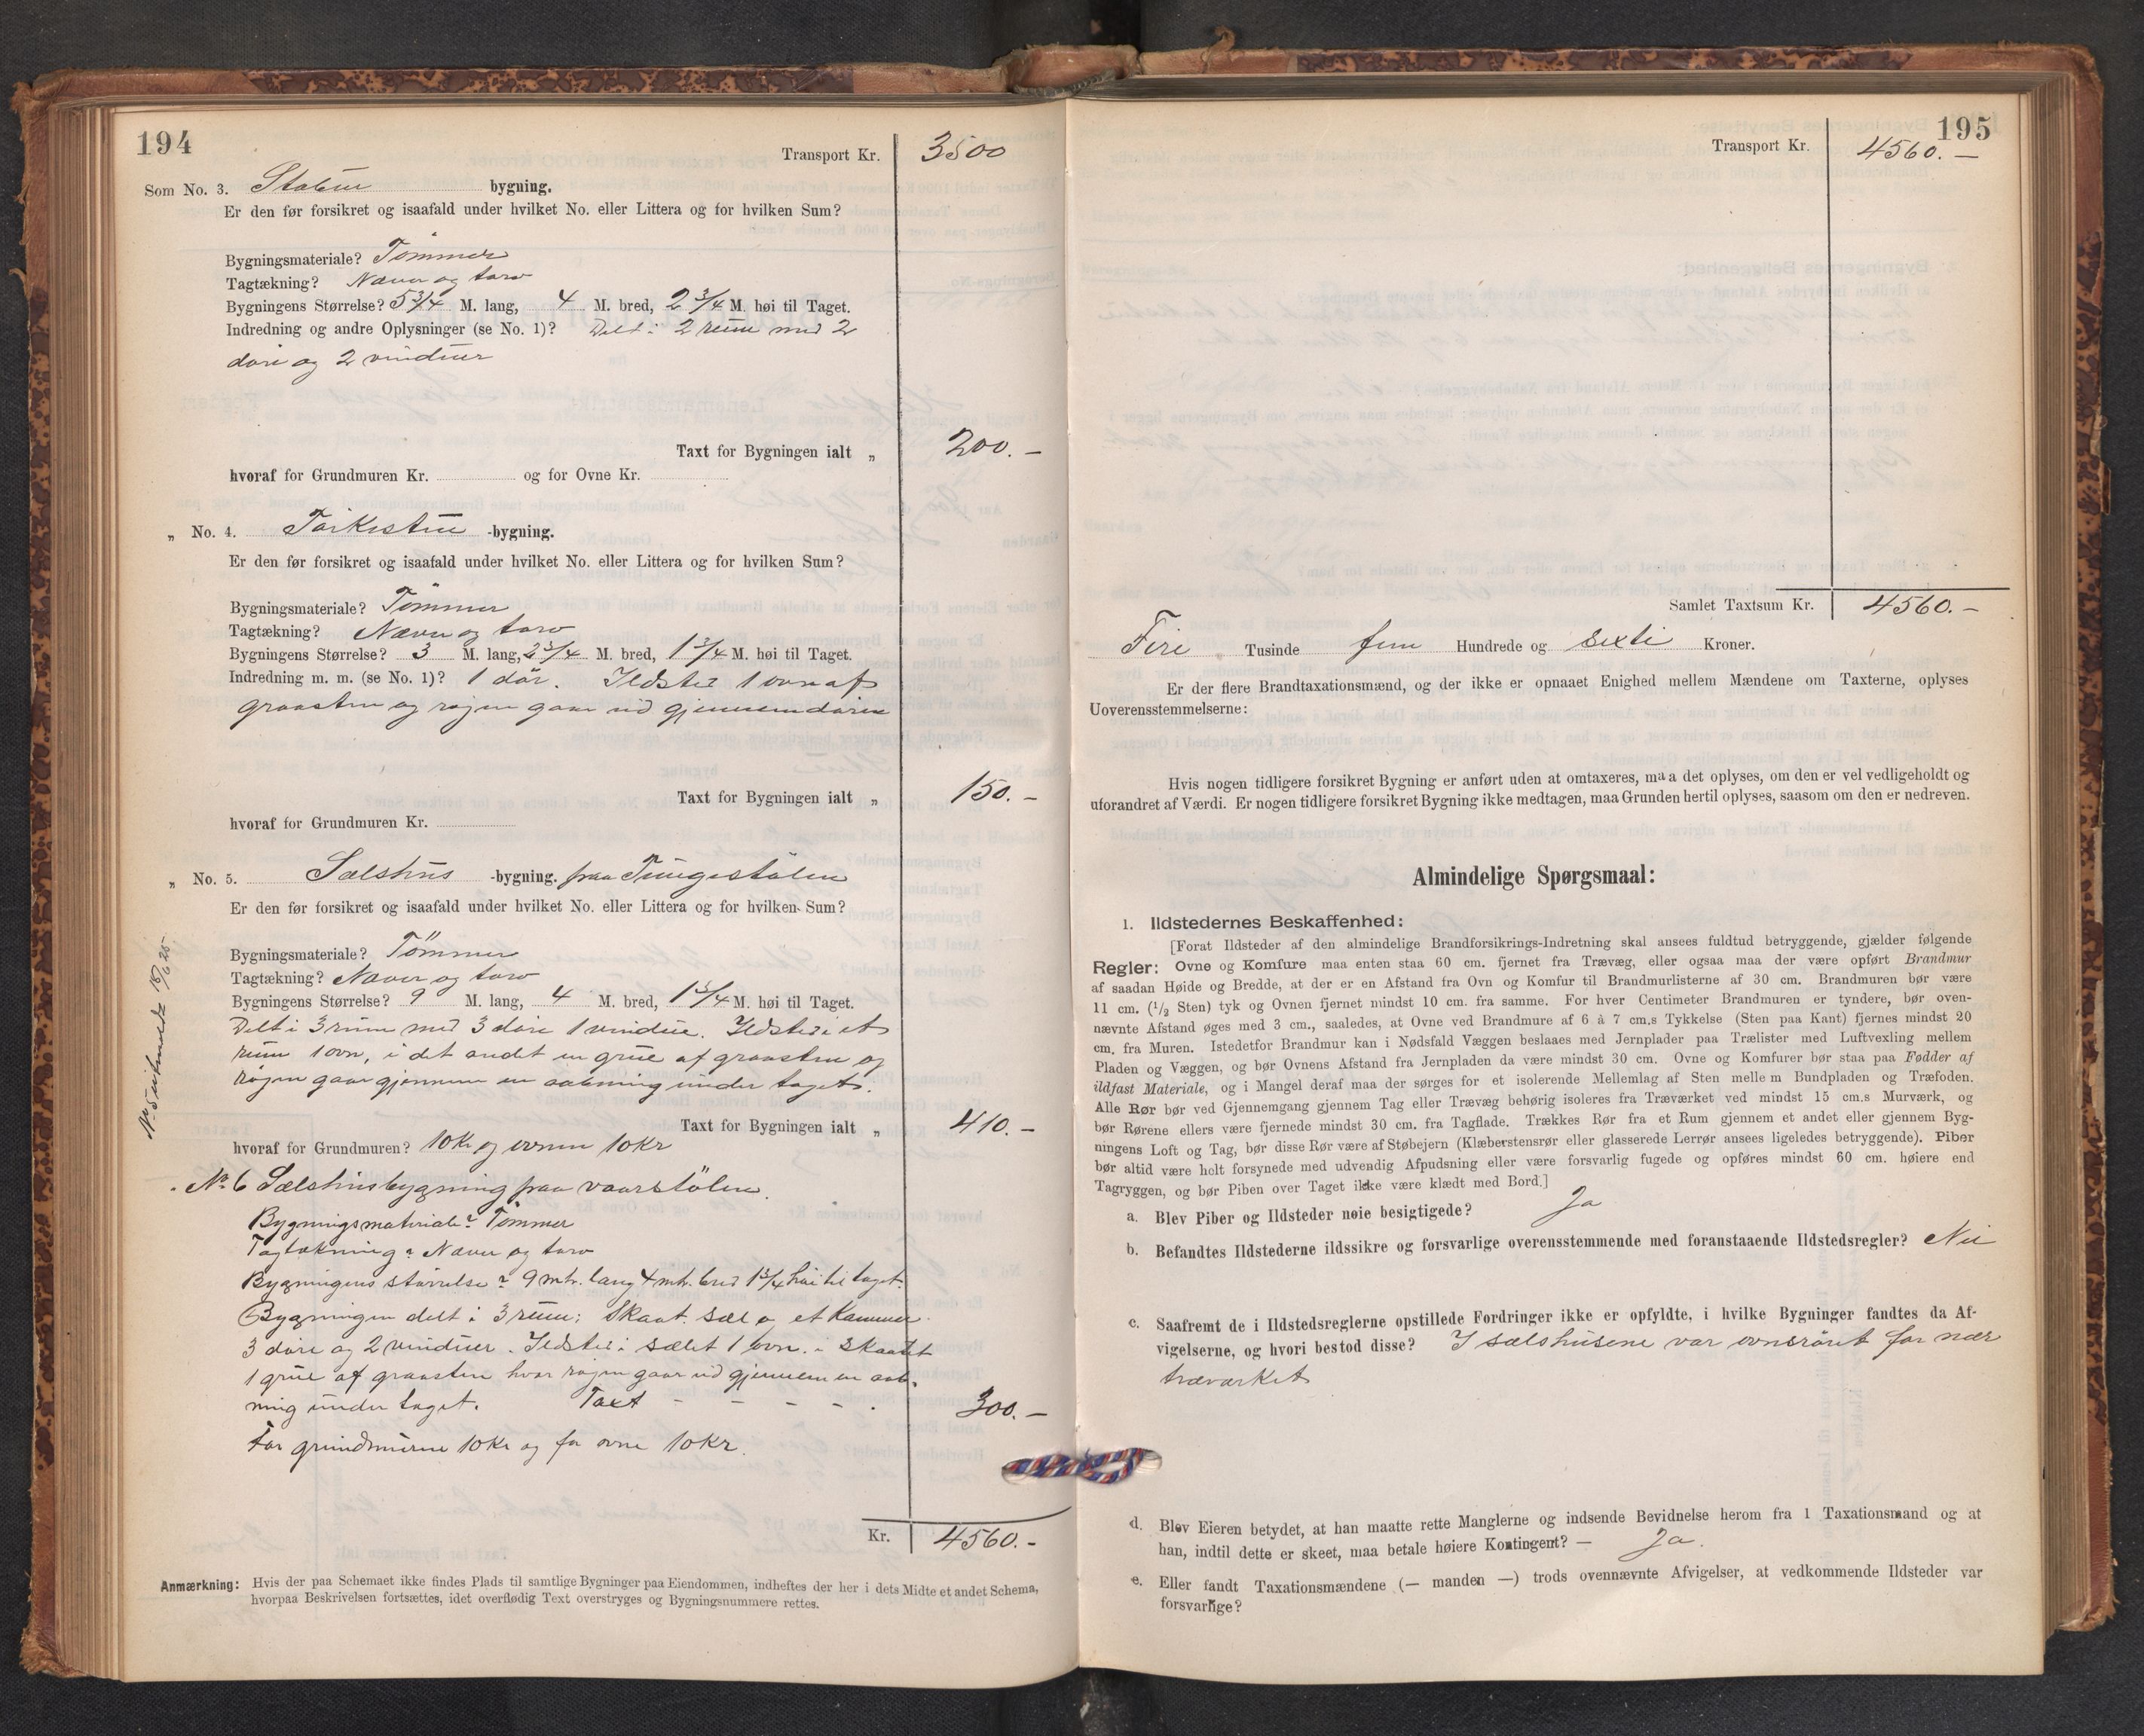 194
Transport Kr. 3500
Som No. 3. Stabur bygning.
Er den før forsikret og isaafald under hvilket No. eller Littera og for hvilken Sum?
Bygningsmateriale? Tømmer
Tagtækning? Næver og torv
Bygningens Størrelse? 5 3/4 M. lang, 4 M. bred, 2 3/4 M. høi til Taget.
Indredning og andre Oplysninger (se No. 1)? Delt i 2 rum med 2
døre og 2 vinduer
Taxt for Bygningen ialt „ 200. —
hvoraf for Grundmuren Kr. og for Ovne Kr.
„ No. 4. Tørkestue -bygning.
Er den før forsikret og isaafald under hvilket No. eller Littera og for hvilken Sum?
Bygningsmateriale? Tømmer
Tagtækning? Næver og torv
Bygningens Størrelse? 3 M. lang, 2 3/4 M. bred, 1 3/4 M. høi til Taget.
Indredning m. m. (se No. 1)? 1 dør. Ildsted 1 ovn af
graasten og røgen gaar ud gjennem døren
Taxt for Bygningen ialt „ 150. —
hvoraf for Grundmuren Kr.
„ No. 5. Sælshus -bygning. paa Tungestølen
Er den før forsikret og isaafald under hvilket No. eller Littera og for hvilken Sum?
Bygningsmateriale? Tømmer
Tagtækning? Næver og torv
Bygningens Størrelse? 9 M. lang, 4 M. bred, 1 3/4 M. høi til Taget.
Delt i 3 rum med 3 døre 1 vindue. Ildsted i et
rum 1 ovn, i det andet en grue af graasten og
røgen gaar gjennem en aabning under taget.
Taxt for Bygningen ialt „ 410. —
hvoraf for Grundmuren? 10 Kr og ovnen 10 Kr
No 5 udmeldt 18/6 25
No 6 Sælshusbygning paa vaarstølen.
Bygningsmateriale? Tømmer
Tagtækning? Næver og torv
Bygningens størrelse? 9 mtr. lang 4 mtr. bred 1 3/4 høi til taget.
Bygningen delt i 3 rum; Skaat. sæl og et Kammer.
3 døre og 2 vinduer. Ildsted i sælet 1 ovn. i Skaatet
1 grue af graasten hvor røgen gaar ud gjennem en aab-
ning under taget. Taxt - - - - . 300. —
For grundmuren 10 Kr og for ovne 10 Kr.
Kr. 4560. -
Anmærkning: Hvis der paa Schemaet ikke findes Plads til samtlige Bygninger paa Eiendommen, indheftes der her i dets Midte et andet Schema,
hvorpaa Beskrivelsen fortsættes, idet overflødig Text overstryges og Bygningsnummere rettes.
195
Transport Kr. 4560. —
Samlet Taxtsum Kr. 4560. —
Fire Tusinde fem Hundrede og sexti Kroner.
Er der flere Brandtaxationsmænd, og der ikke er opnaaet Enighed mellem Mændene om Taxterne, oplyses
Uoverensstemmelserne:
Hvis nogen tidligere forsikret Bygning er anført uden at omtaxeres, maa det oplyses, om den er vel vedligeholdt og
uforandret af Værdi. Er nogen tidligere forsikret Bygning ikke medtagen, maa Grunden hertil oplyses, saasom om den er nedreven.
Almindelige Spørgsmaal:
1. Ildstedernes Beskaffenhed:
[Forat Ildsteder af den almindelige Brandforsikrings-Indretning skal ansees fuldtud betryggende, gjælder følgende
Regler: Ovne og Komfure maa enten staa 60 cm. fjernet fra Trævæg, eller ogsaa maa der være opført Brandmur
af saadan Høide og Bredde, at der er en Afstand fra Ovn og Komfur til Brandmurlisterne af 30 cm. Brandmuren bør være
11 cm. (1/2 Sten) tyk og Ovnen fjernet mindst 10 cm. fra samme. For hver Centimeter Brandmuren er tyndere, bør oven-
nævnte Afstand øges med 3 cm., saaledes, at Ovne ved Brandmure af 6 à 7 cm.s Tykkelse (Sten paa Kant) fjernes mindst 20
cm. fra Muren. Istedetfor Brandmur kan i Nødsfald Væggen beslaaes med Jernplader paa Trælister med Luftvexling mellem
Pladen og Væggen, og bør Ovnens Afstand fra Jernpladen da være mindst 30 cm. Ovne og Komfurer bør staa paa Fødder af
ildfast Materiale, og i Mangel deraf maa der sørges for et isolerende Mellemlag af Sten mellem Bundpladen og Træfoden.
Alle Rør bør ved Gjennemgang gjennem Tag eller Trævæg behørig isoleres fra Træværket ved mindst 15 cm.s Murværk, og
bør Rørene ellers være fjernede mindst 30 cm. fra Tagflade. Trækkes Rør fra et Rum gjennem et andet eller gjennem Byg-
ningens Loft og Tag, bør disse Rør være af Støbejern (Klæberstensrør eller glasserede Lerrør ansees ligeledes betryggende). Piber
bør altid være helt forsynede med udvendig Afpudsning eller være forsvarlig fugede og opføres mindst 60 cm. høiere end
Tagryggen, og bør Piben over Taget ikke være klædt med Bord.]
a. Blev Piber og Ildsteder nøie besigtigede? Ja
b. Befandtes Ildstederne ildssikre og forsvarlige overensstemmende med foranstaaende Ildstedsregler? Nei
c. Saafremt de i Ildstedsreglerne opstillede Fordringer ikke er opfyldte, i hvilke Bygninger fandtes da Af-
vigelserne, og hvori bestod disse? I sælshusene var ovnsrøret for nær
træværket
d. Blev Eieren betydet, at han maatte rette Manglerne og indsende Bevidnelse herom fra 1 Taxationsmand og at
han, indtil dette er skeet, maa betale høiere Kontingent? — Ja.
e. Eller fandt Taxationsmændene (— manden —) trods ovennævnte Afvigelser, at vedkommende Ildsteder var
forsvarlige?